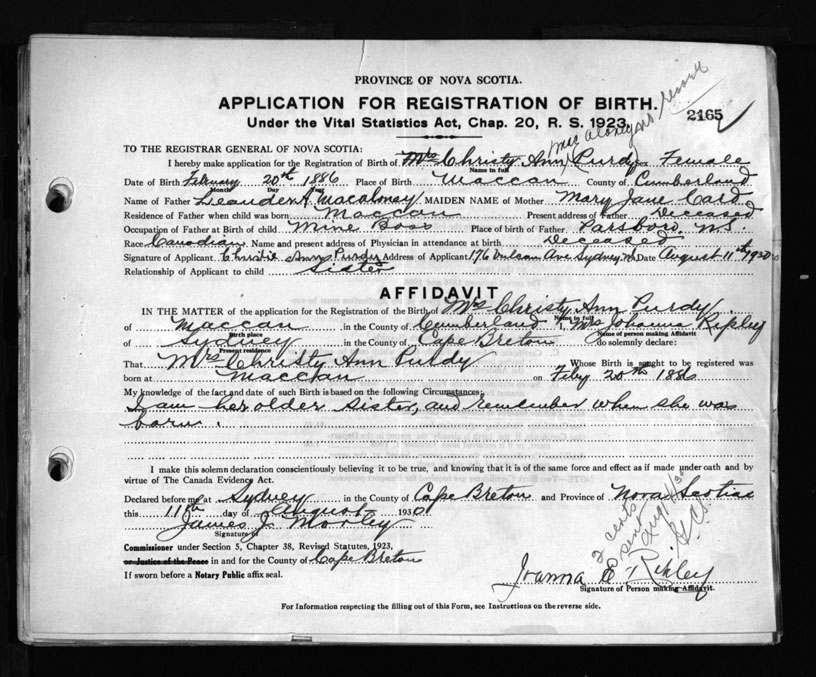 PROVINCE OF NOVA SCOTIA.
APPLICATION FOR REGISTRATION OF BIRTH.
Under the Vital Statistics Act, Chap. 20, R. S. 1923.
2165
TO THE REGISTRAR GENERAL OF NOVA SCOTIA:
I hereby make application for the Registration of Birth of Mrs Christy Ann Purdy Sex Female
Name in full
Date of Birth February 20th 1886 Place of Birth Maccan County of Cumberland
Month Day Year
Name of Father Macaloney MAIDEN NAME of Mother Mary Jane Card
Residence of Father when child was born Maccan Present address of Father Deceased
Occupation of Father at Birth of child Mine Boss Place of birth of Father Parsboro N.S.
Race Canadian Name and present address of Physician in attendance at birth Deceased
Signature of Applicant Christie Ann Purdy Address of Applicant 176 Vulcan Ave. Sydney N.S. Date August 11th 1930
Relationship of Applicant to child Sister
AFFIDAVIT
IN THE MATTER of the application for the Registration of the Birth of Mrs Christy Ann Purdy
Name in full
of Maccan in the County of Cumberland I, Mrs Ripley
Birth place Name of person making Affidavit
of Sydney in the County of Cape Breton do solemnly declare:
Present residence
That Mrs Christy Ann Purdy Whose Birth is sought to be registered was
born at Maccan on Feby 20th 1886
My knowledge of the fact and date of such Birth is based on the following Circumstances:
I am her older sister, and remember when she was
born.
I make this solemn declaration conscientiously believing it to be true, and knowing that it is of the same force and effect as if made under oath and by
virtue of The Canada Evidence Act.
Declared before me at Sydney in the County of Cape Breton and Province of Nova Scotia
this 11th day of August 1930
James J. Morley
Signature of
Commissioner under Section 5, Chapter 38, Revised Statutes, 1923,
or Justice of the Peace in and for the County of Cape Breton
If sworn before a Notary Public affix seal.
2 certs
sent
Joanna E Ripley
Signature of Person making Affidavit.
For Information respecting the filling out of this Form, see Instructions on the reverse side.